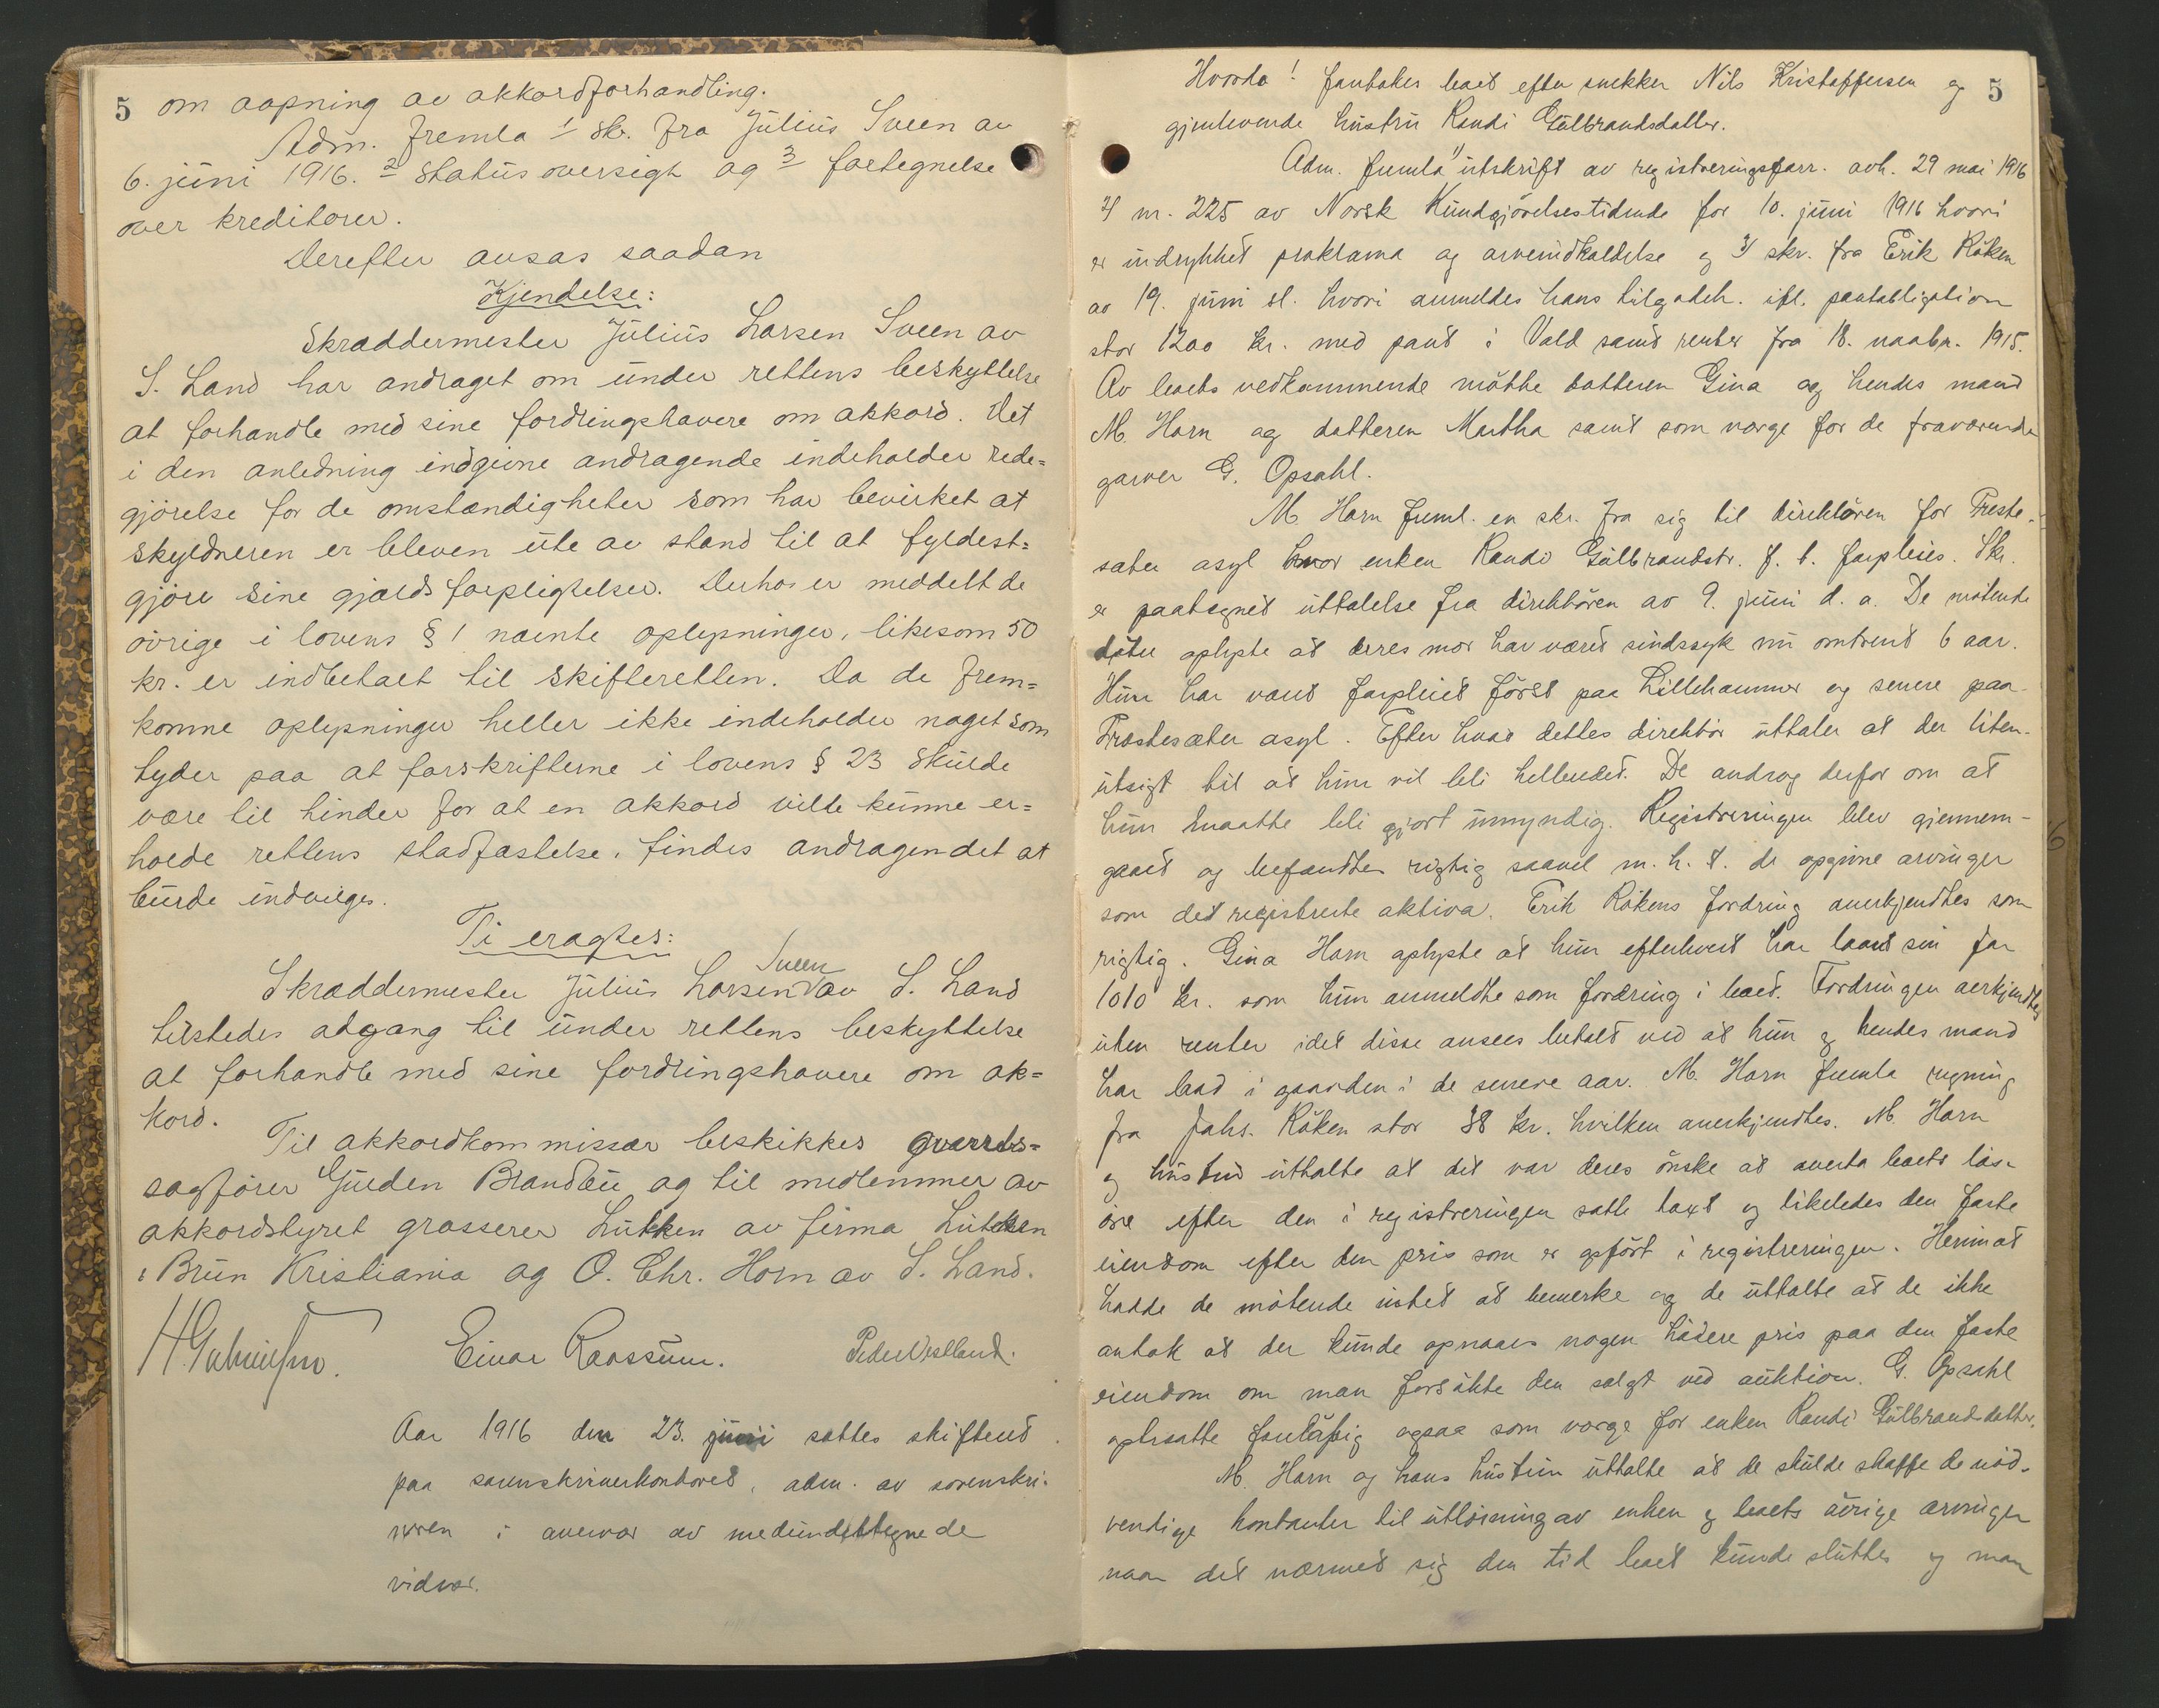 5 om aapning av akkordforhandling.
Adm. fremla 1/ skr. fra Julius Sveen av
6. juni 1916. 2/ Statusoversigt og 3/ fortegnelse
over kreditorer.
Derefter avsas saadan
Kjendelse:
Skræddermester Julius Larsen Sveen av
S. Land har andraget om under rettens beskyttelse
at forhandle med sine fordringshavere om akkord. Det
i den anledning indgivne andragende indeholder rede=
gjörelse for de omstændigheter som har bevirket at
skyldneren er bleven ute av stand til at fyldest=
gjöre sine gjældsforpligtelser. Derhos er meddelt de
övrige i lovens § 1 nævnte oplysninger, likesom 50
kr. er indbetalt til skifteretten. Da de frem=
komne oplysninger heller ikke indeholder noget som
tyder paa at forskrifterne i lovens § 23 skulde
være til hinder for at en akkord vilde kunne er=
holde rettens stadfæstelse, findes andragendet at
burde indvilges.
Ti eragtes:
Sveen
Skræddermester Julius Larsen V av S. Land
tilstedes adgang til under rettens beskyttelse
at forhandle med sine fordringshavere om ak=
kord.
Til akkordkommissær beskikkes overrets=
sagförer Gulden Brandbu og til medlemmer av
akkordstyret grosserer Lütken av firma Lütken
& Brun Kristiania og O. Chr. Horn av S. Land.
Einar Raassum. Peder Vestland.
Aar 1916 den 23. juni sattes skifteret
paa sorenskriverkontoret, adm. av sorenskri-
veren i overvær av medundertegnede
vidner.
5
Hvorda! foretokes boet efter snekker Nils Kristoffersen og
gjenlevende hustru Randi Gulbrandsdatter.
Adm. fremla 1/ utskrift av registreringsforr. avh. 29 mai 1916
2/ nr. 225 av Norsk Kundgjörelsestidende for 10. juni 1916 hvori
er indrykket proklama og arveindkaldelse og 3/ skr. fra Erik Röken
av 19. juni sl. hvori anmeldes hans tilgodeh. ifl. pantobligation
stor 1200 kr. med pant i Vold samt renter fra 18. novbr. 1915.
Av boets vedkommende mötte datteren Gina og hendes mand
M. Horn og datteren Martha samt som værge for de fraværende
garver G. Opsahl.
M. Horn freml. en skr. fra sig til direktören for Preste-
sæter asyl hvor enken Randi Gulbrandsdtr. f. t. forpleies. Skr.
er paategnet uttalelse fra direktören av 9. juni d. a. De mötende
dötre oplyste at deres mor har været sindssyk nu omtrent 6 aar.
Hun har været forpleiet först paa Lillehammer og senere paa
Præstesæter asyl. Efter hvad dettes direktör uttaler at der liten
utsigt til at hun vil bli helbredet. De androg derfor om at
hun maatte bli gjort umyndig. Registreringen blev gjennem-
gaaet og befandtes rigtig saavel m. h. t. de opgivne arvinger
som det registrerte aktiva. Erik Rökens fordring anerkjendtes som
rigtig. Gina Horn oplyste at hun efterhvert har laant sin far
1010 kr. som hun anmeldte som fordring i boet. Fordringen aerkjendtes
uten renter idet disse ansees betalt ved at hun og hendes mand
har bod i gaarden i de senere aar. M. Horn fremla regning
fra Johs. Röken stor 38 kr. hvilken anerkjendtes. M. Horn
og hustru uttalte at det var deres önske at overta boets lös-
öre efter den i registreringen satte taxt og likeledes den faste
eiendom efter den pris som er opfört i registreringen. Herimot
hadde de mötende intet at bemerke og de uttalte at de ikke
antok at der kunde opnaaes nogen höiere pris paa den faste
eiendom om man forsökte den solgt ved auktion. G. Opsahl
opbesatte foreløbig ogsaa som værge for enken Randi Gulbrandsdatter.
M. Horn og hans hustru uttalte at de skulde skaffe de nöd-
vendige kontanter til utlösning av enken og boets övrige arvinger
naar det nærmet sig den tid boet kunde sluttes og man